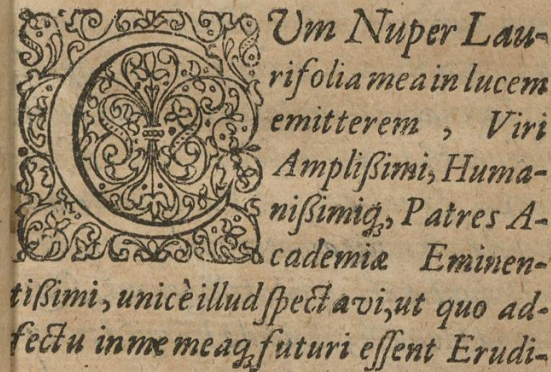 CUm Nuper Lau-
rifolia mea in lucem
emitterem , Viri
Amplißimi, Huma-
nißimiq́;, Patres A-
cademiæ Eminen-
tißimi, unicè illud spectavi, ut quo ad-
fectu in me meaq́; futuri essent Erudi-